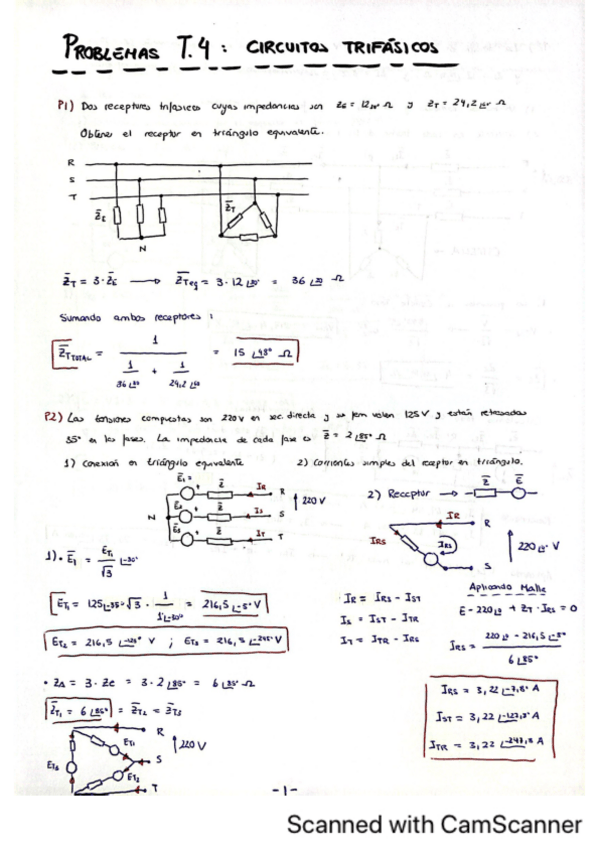 PROBLEMAS T.4: CIRCUITOS TRIFÁSICOS
P1) Dos receptores trifasicos cuyas impedancias son Z̄E = 12∠30° Ω y Z̄T = 24,2∠60° Ω
Obtener el receptor en triángulo equivalente.
R
S
T
Z̄E
Z̄T
N
Z̄T = 3·Z̄E → Z̄Teq = 3·12∠30° = 36∠30 Ω
Sumando ambos receptores:
Z̄T TOTAL = 1 / (1/36∠30 + 1/24,2∠60) = 15∠48° Ω
P.2) Las tensiones compuestas son 220V en sec. directa y su fem valen 125V y están retrasadas
35° en las fases. La impedancia de cada fase es Z̄ = 2∠85° Ω
1) Conexión en triángulo equivalente
2) Corrientes simples del receptor en triángulo.
Ē1 Z̄ IR R
Ē2 Z̄ IS S
Ē3 Z̄ IT T
N
220 V
2) Receptor → Z̄ Ē
IR R
IRS IRS
S
220∠0° V
1)· Ē1 = ET1/√3 ∠-30°
ET1 = 125∠-35° √3 · 1/1∠-30° = 216,5∠-5° V
ET2 = 216,5∠-125° V ; ET3 = 216,5∠-245° V
IR = IRS - IST
IS = IST - ITR
IT = ITR - IRS
Aplicando Malla
E - 220∠0 + ZT·IRS = 0
IRS = (220∠0 - 216,5∠-5°) / 6∠85°
· ZΔ = 3·Ze = 3·2∠85° = 6∠85° Ω
Z̄T1 = 6∠85° = Z̄T2 = Z̄T3
IRS = 3,22∠-7,8° A
IST = 3,22∠-127,8° A
ITR = 3,22∠-247,8 A
R
ET1
220 V
ET3
S
ET2
T
-1-
Scanned with CamScanner